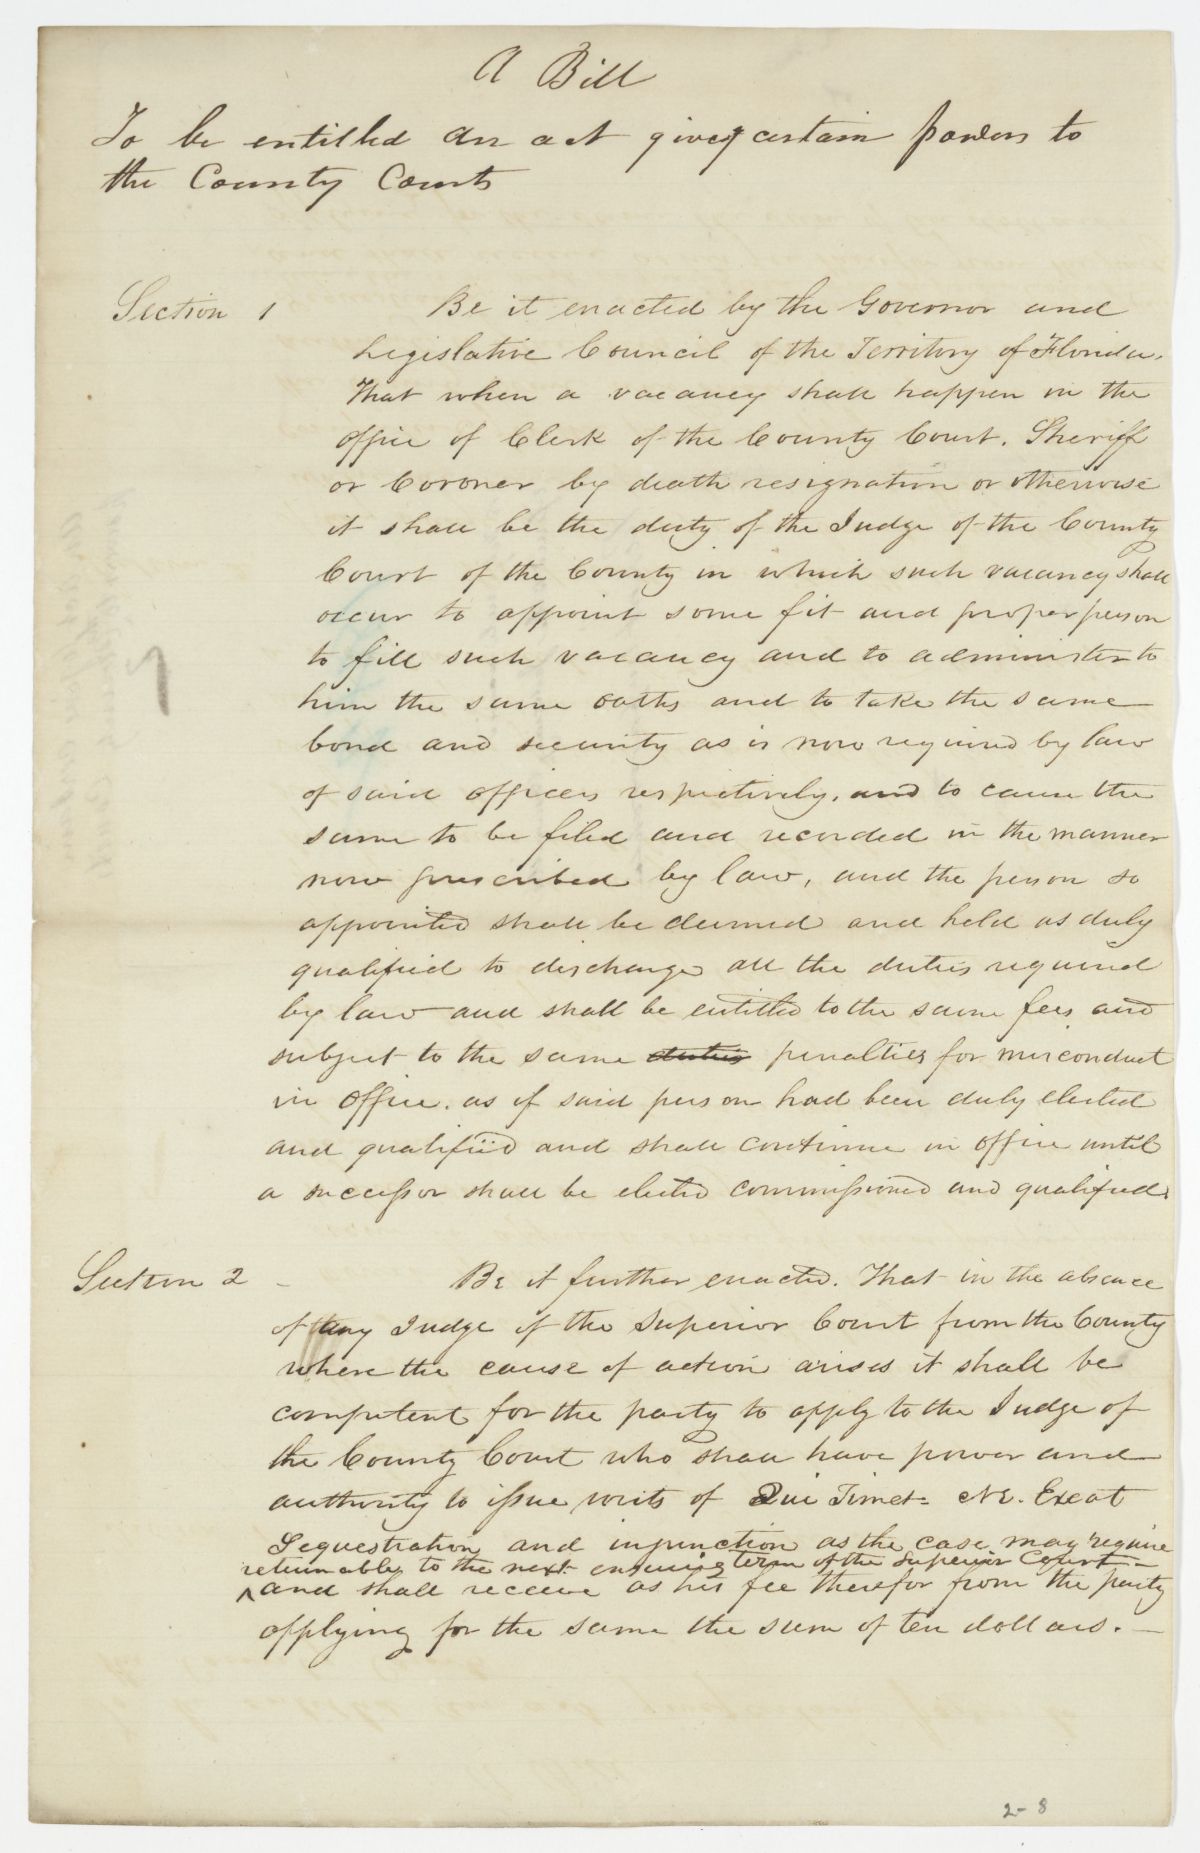 A Bill
To be entitled an act giveg certain powers to
the County Courts
Section 1 Be it enacted by the Governor and
Legislative Council of the Territory of Florida.
That when a vacancy shall happen in the
office of Clerk of the County Court. Sheriff
or Coroner by death resignation or otherwise
it shall be the duty of the Judge of the County
Court of the County in which such vacancy shall
occur to appoint some fit and proper person
to fill such vacancy and to administer to
him the same oaths and to take the same
bond and security as is now required by law
of said officers respectively, and to cause the
same to be filed and recorded in the manner
now prescribed by law, and the person so
appointed shall be deemed and held as duly
qualified to discharge all the duties required
by law and shall be entitled to the same fees and
subject to the same duties penalties for misconduct
in office. as if said person had been duly elected
and qualified and shall continue in office until
a successor shall be elected commissioned and qualified.
Section 2 - Be it further enacted. That in the absence
of any Judge of the Superior Court from the County
where the cause of action arises it shall be
competent for the party to apply to the Judge of
the County Court who shall have power and
authority to issue writs of Qui Timet - NE. Exeat
Sequestration and injunction as the case may require
returnable to the next ensuing term of the Superior Court -
^ and shall receive as his fee therefor from the party
applying for the same the sum of ten dollars. -
2-8